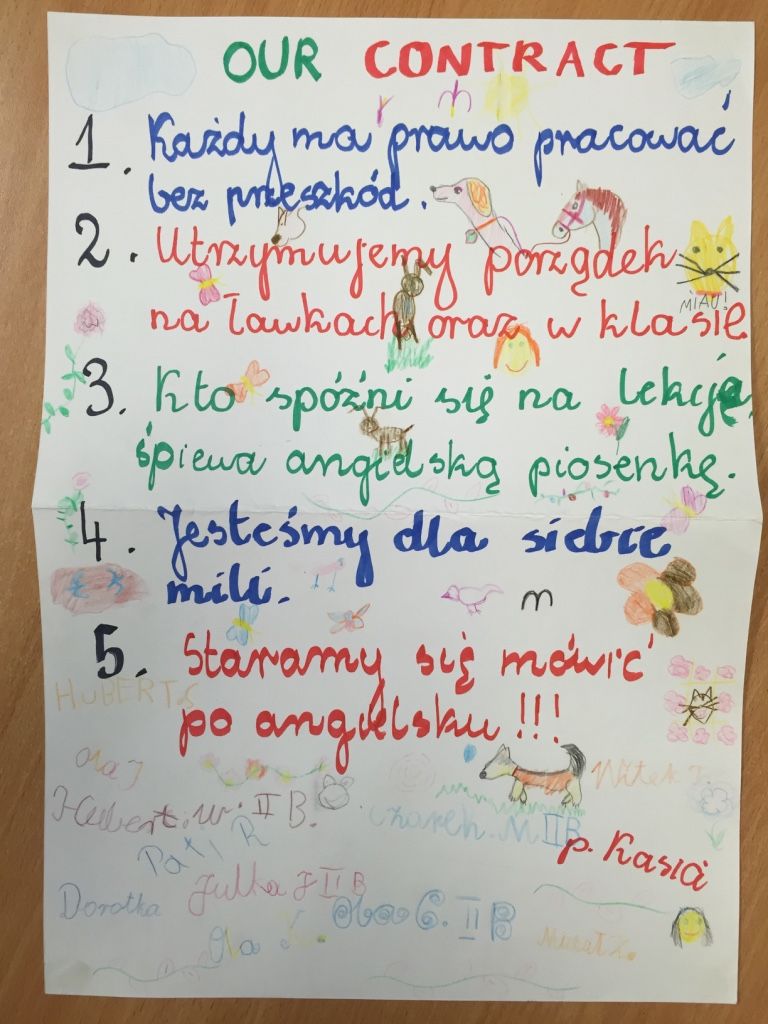 OUR CONTRACT
1. Każdy ma prawo pracować
bez przeszkód.
2. Utrzymujemy porządek
na ławkach oraz w klasie
MIAU!
3. Kto spóźni się na lekcję,
śpiewa angielską piosenkę.
4. Jesteśmy dla siebie
mili.
5. Staramy się mówić
po angielsku!!!
HUBERT S
Ola J
Witek J.
Hubert. W. II B.
Czarek. M II B
Pati R
p. Kasia
Julka J II B
Dorotka
Ola G. II B
Ola K.